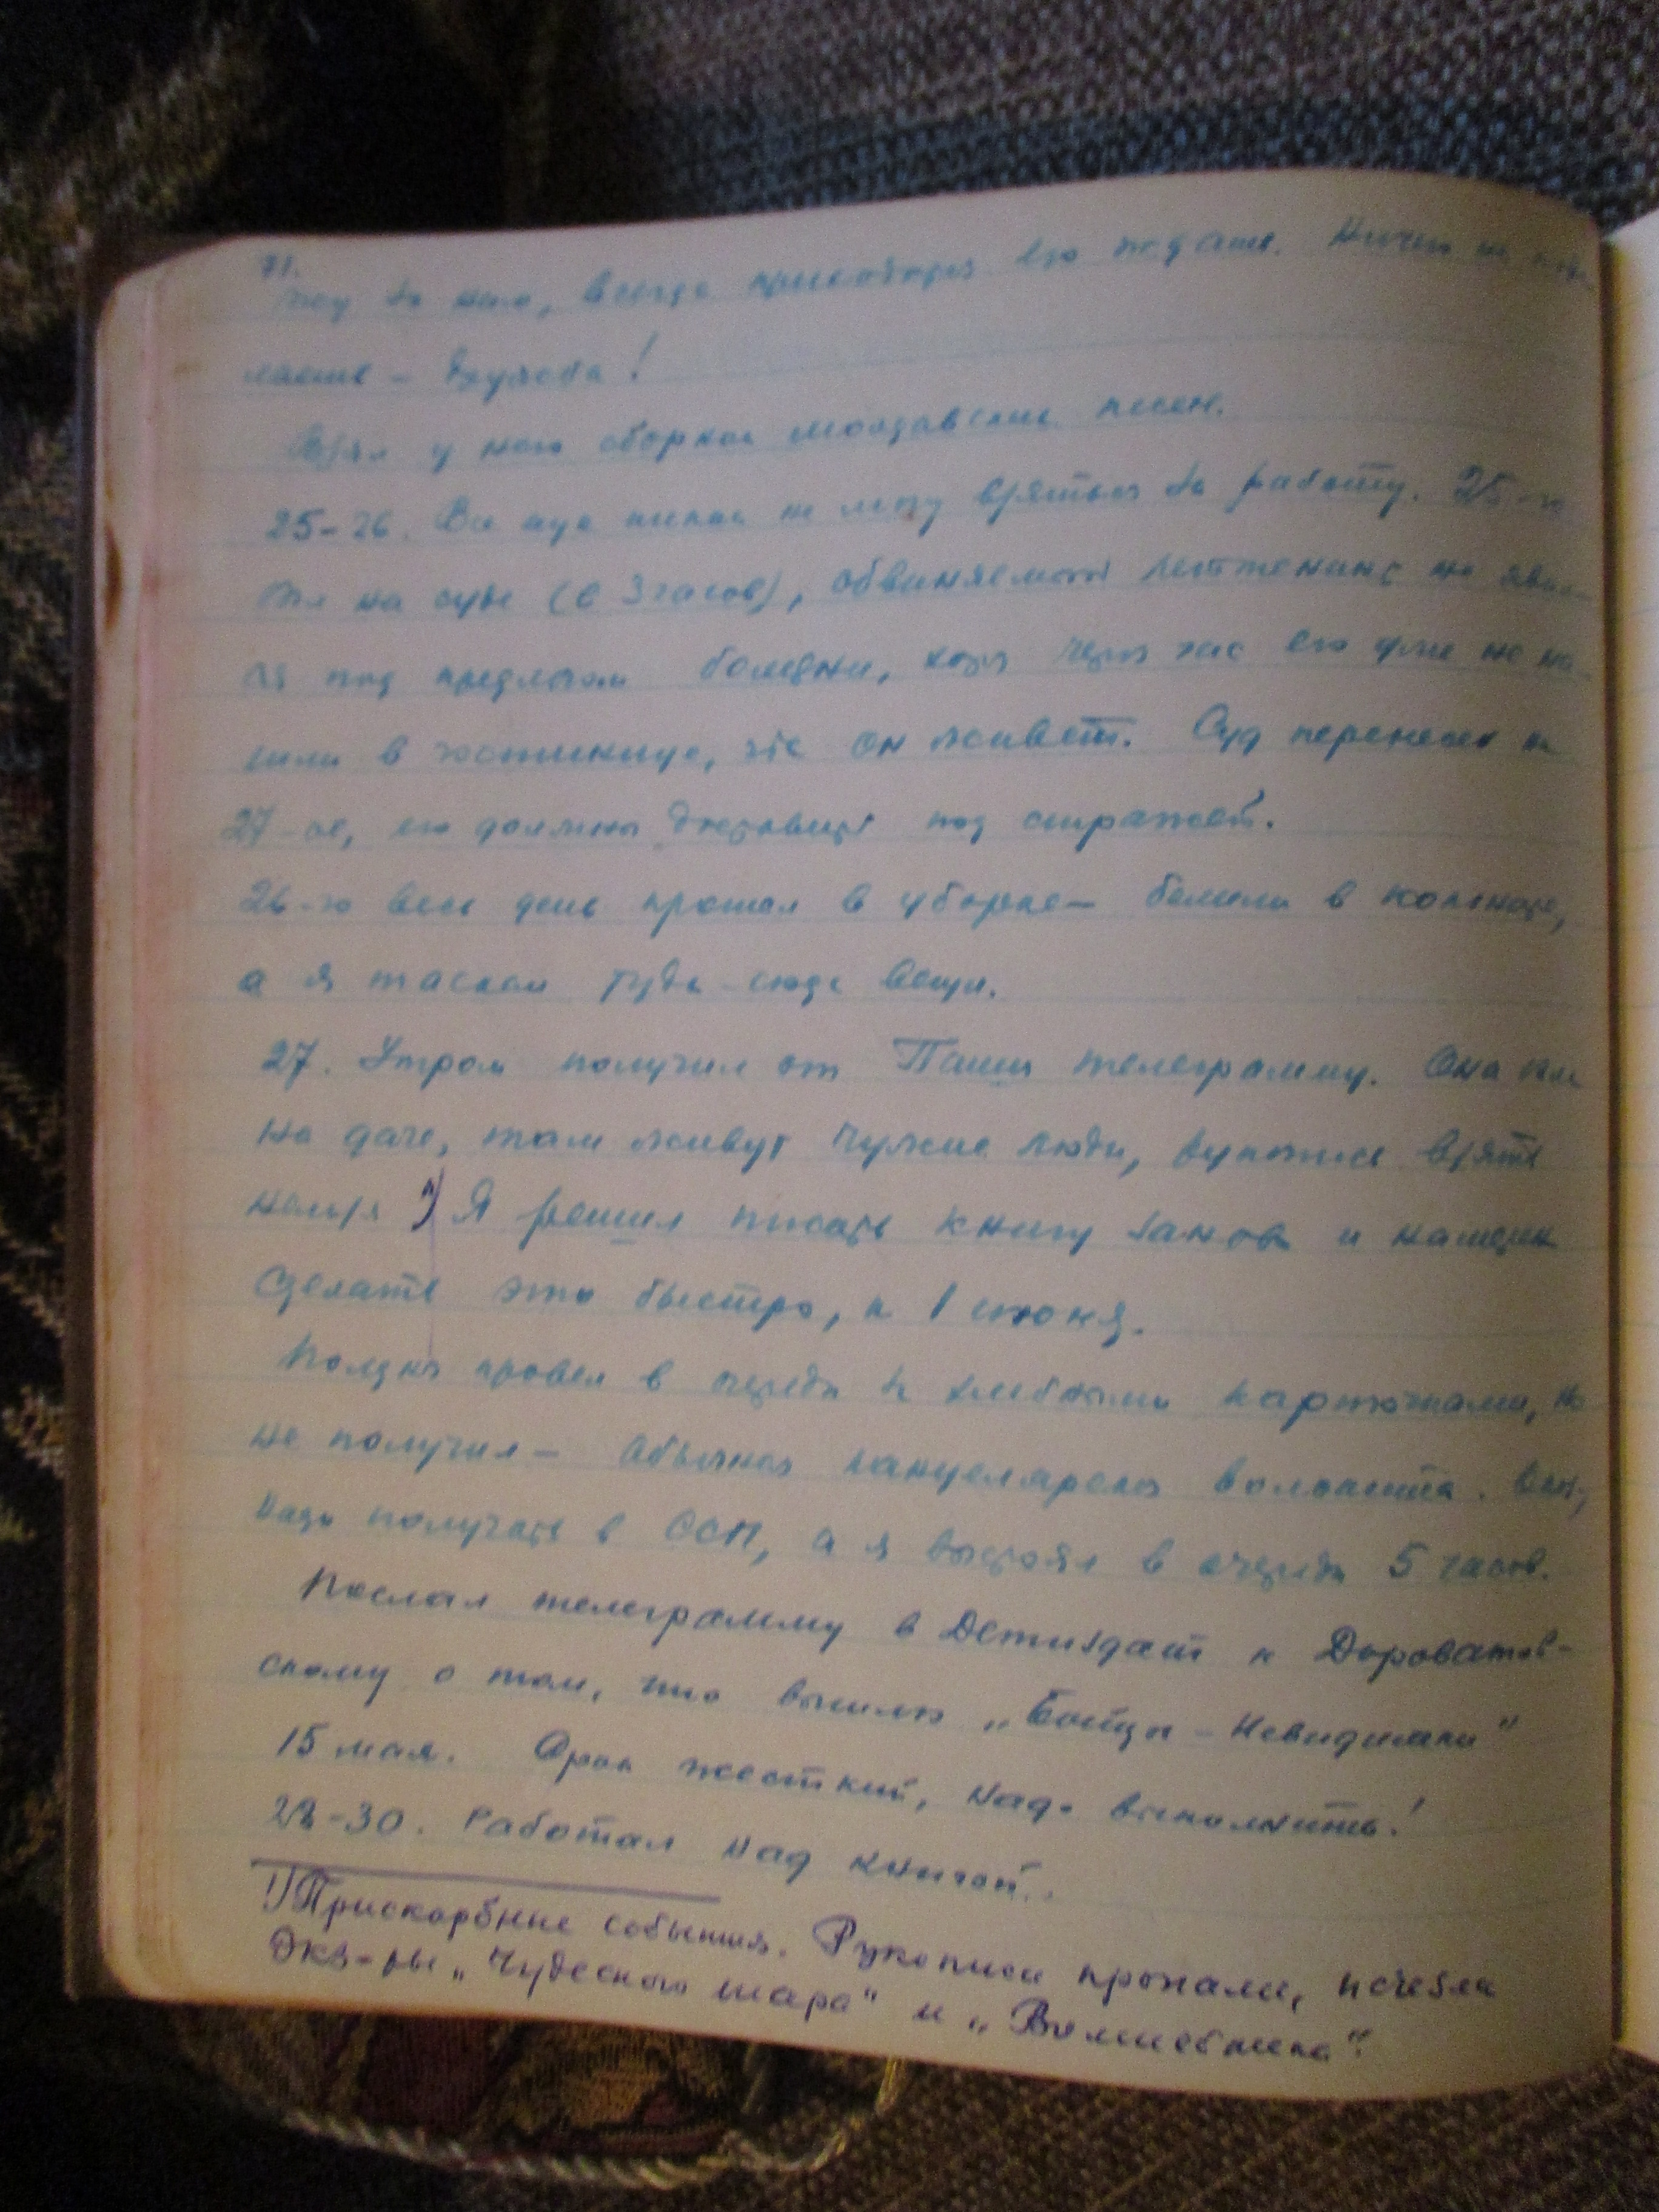 71.
за мной, всегда приходится его ждать. Ничего не
лаешь – дружба!
Взял у него сборник молдавских песен.
25-26. Все еще никак не могу взяться за работу. 25-го
был на суде (в 3 часов), обвиняемый не явил-
ся под предлогом болезни, хотя через час его уже не на-
шли в гостинице, где он живет. Суд перенесен на
27-ое, его должны доставить под стражей.
26-го весь день прошел в уборке – белили в комнате,
а я таскал туда-сюда вещи.
27. Утром получил от Паши телеграмму. Она была
на даче, там живут чужие люди, рукопись взять
нельзя 1) Я решил писать книгу заново и намерен
сделать это быстро, к 1 июня.
Полдня провел в очереди за хлебными карточками, но
не получил – обычная канцелярская волокита.
надо получать в ССП, а я выстоял в очереди 5 часов.
Послал телеграмму в Детиздат к Дороватов-
скому о том, что вышлю „Бойцы-Невидимки"
15 мая. Срок жесткий, надо выполнить!
28-30. Работал над книгой.
1) Прискорбные события. Рукописи пропали, исчезли
экз-ры „Чудесного шара" и „Волшебника".